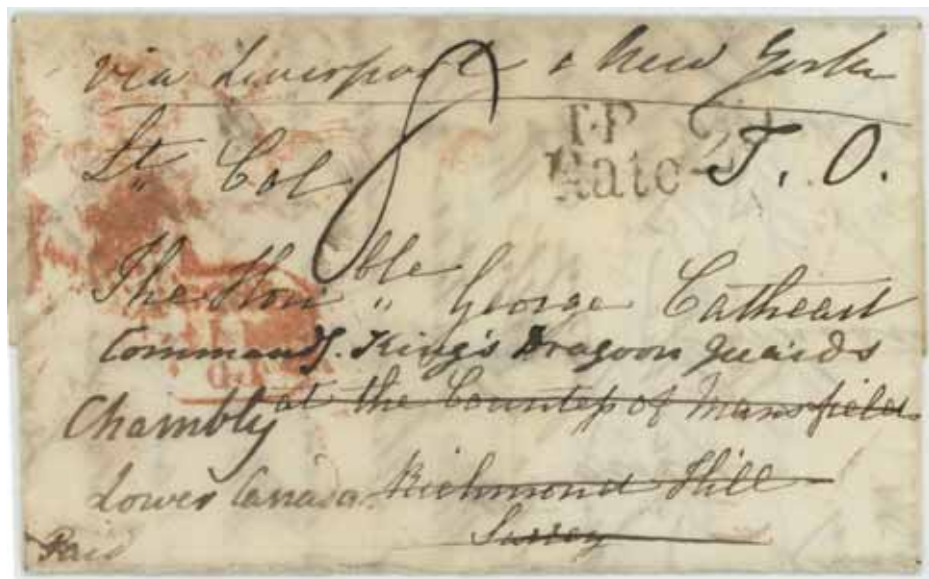 via Liverpool & New York
8
T.P
Rate 2d
T. O.
Lt. Col
The Hon"ble George Cathcart
Commandg. King's Dragoon Guards
at the Countess of Mansfield
Chambly
Lower Canada. Richmond Hill
Surrey
Paid